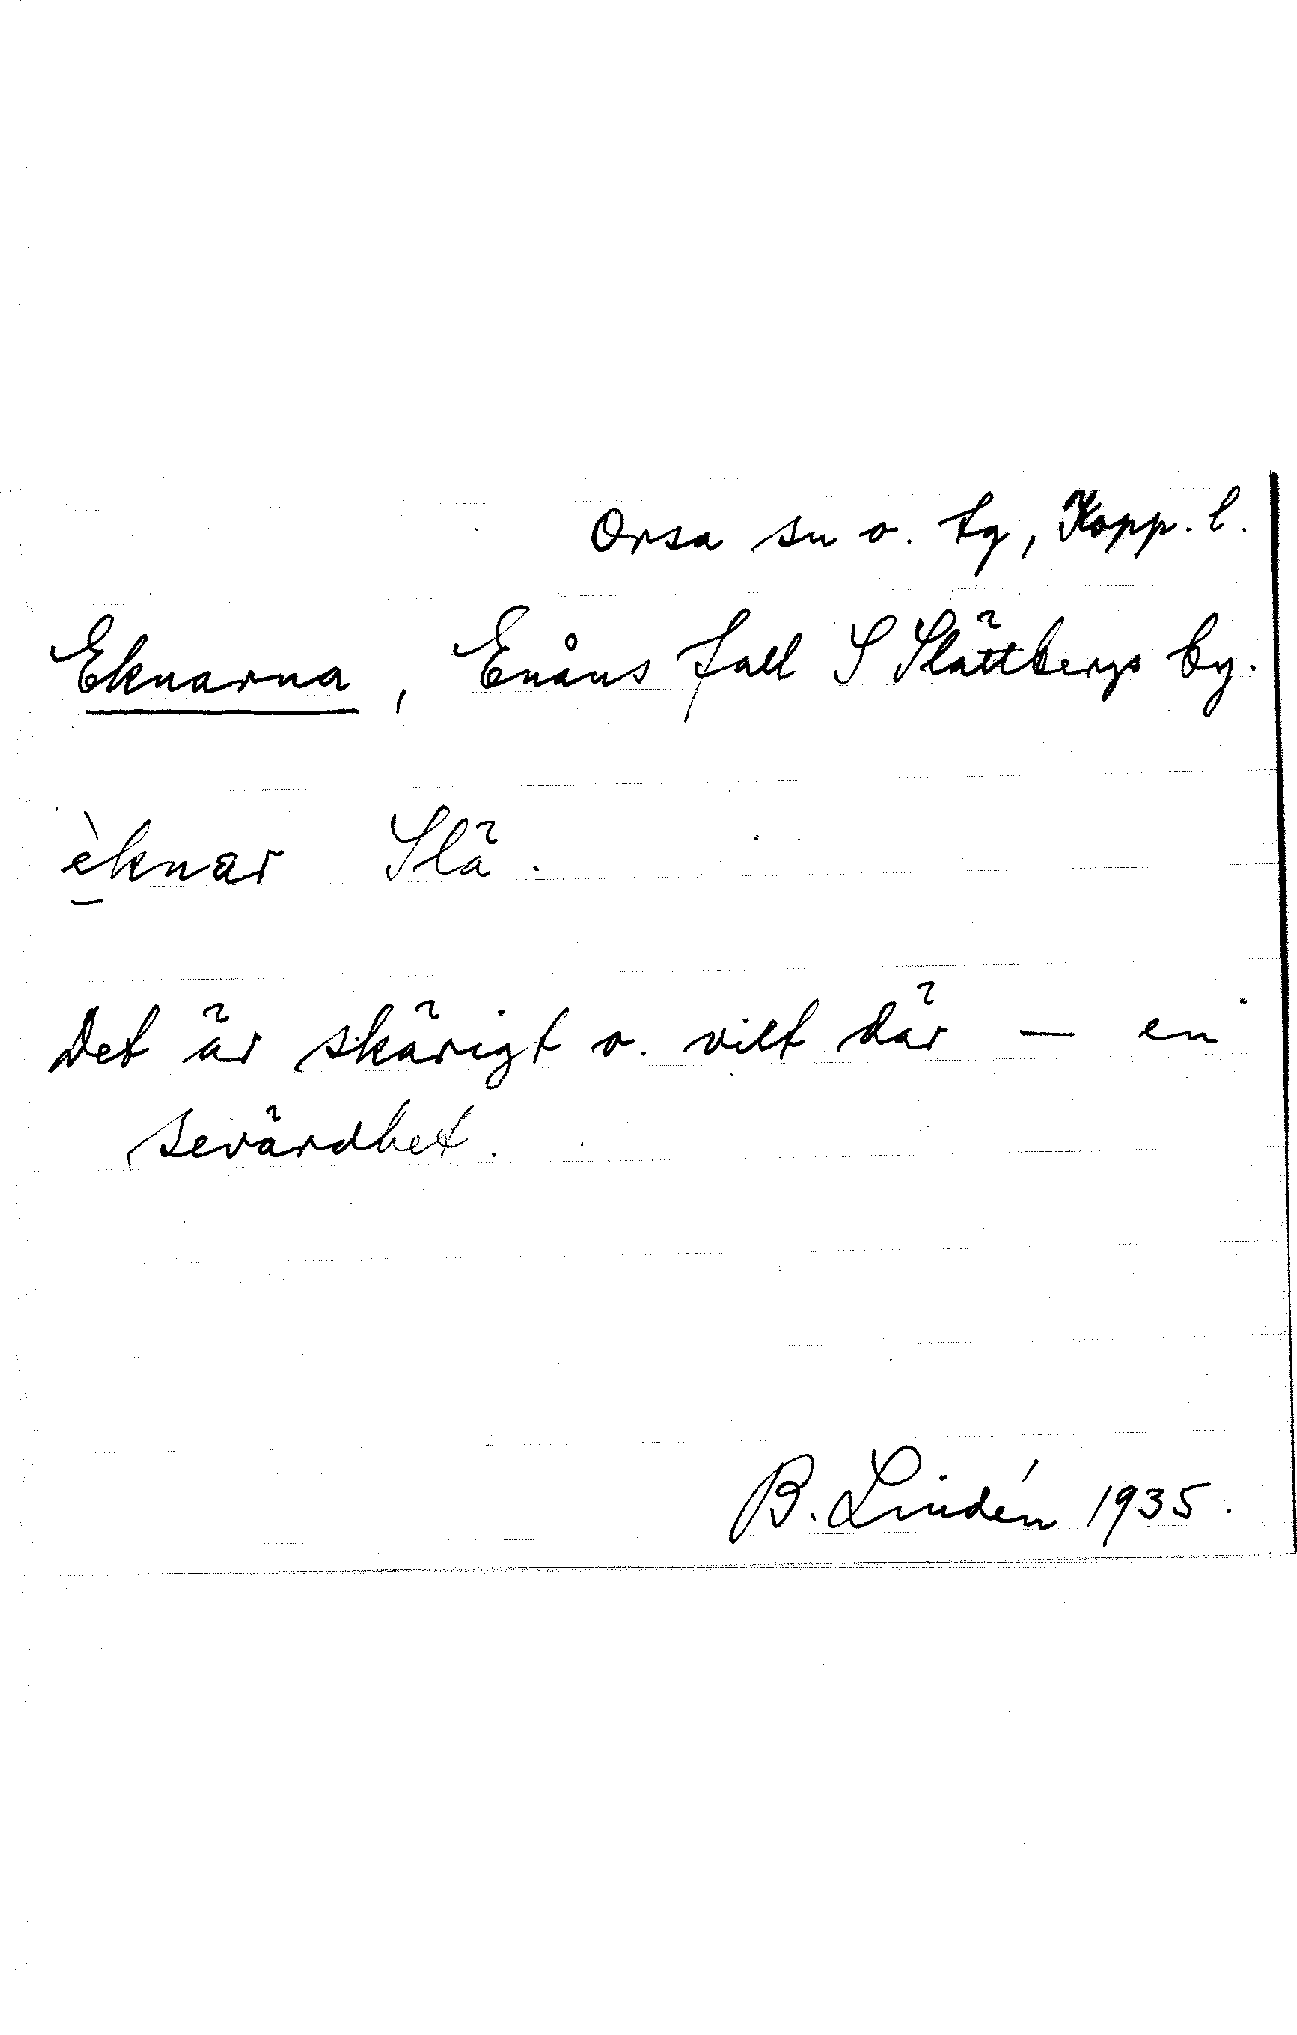 Orsa sn o. tg, Kopp. l.
Eknarna, Enåns fall S Slättbergs by.
èknar Slä.
Det är skärigt o. vilt där — en
sevärdhet.
B. Lindén 1935.